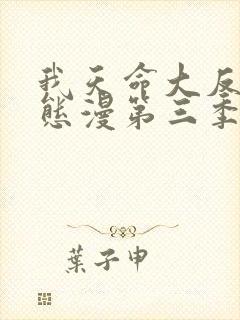 我天命大反
态漫第三季
葉子申